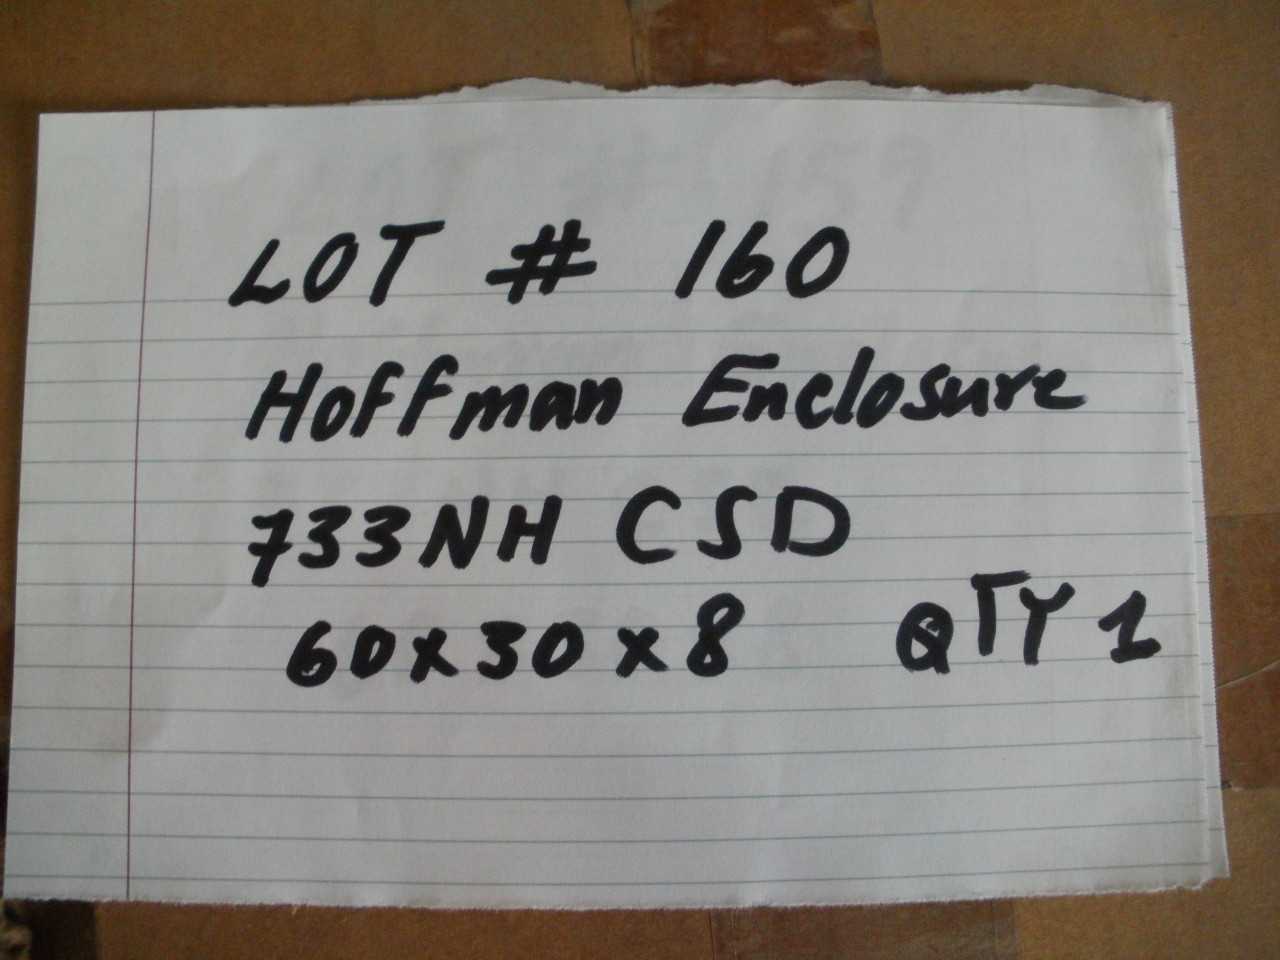 LOT # 160
Hoffman Enclosure
733NH CSD
60x30x8 QTY 1